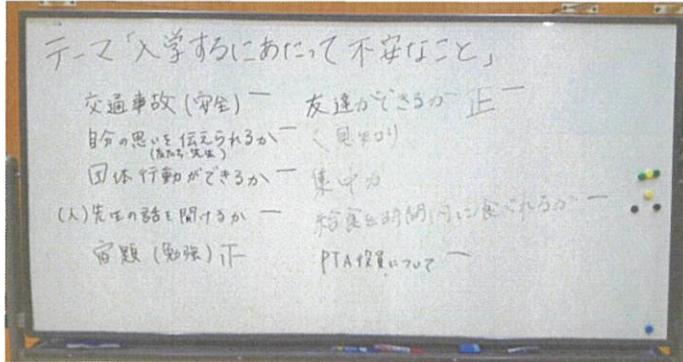 テーマ「入学するにあたって不安なこと」
交通事故(安全) 一
自分の思いを伝えられるか 一
(友だち・先生)
団体行動ができるか 一
(人)先生の話を聞けるか 一
宿題(勉強) 正
友達ができるか 正一
く人見知り
集中力
給食を時間内に食べれるか 一
PTA役員について 一